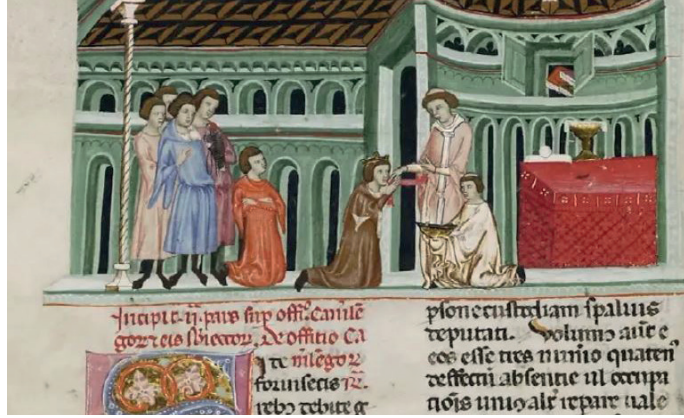 Incipit .ij. pars sup offi.o Camlē
goꝝ ⁊ eis sbiectoꝝ. De offitio Ca
te mlēgoꝝ
forinsecis
rebꝫ debite g
psone custodiam spaliuis
deputati. Volumꝰ aūt e
eos esse tres numo quatenꝰ
deffectū absentie ul occupa
tiōis uniꝰ altꝰ repare uale